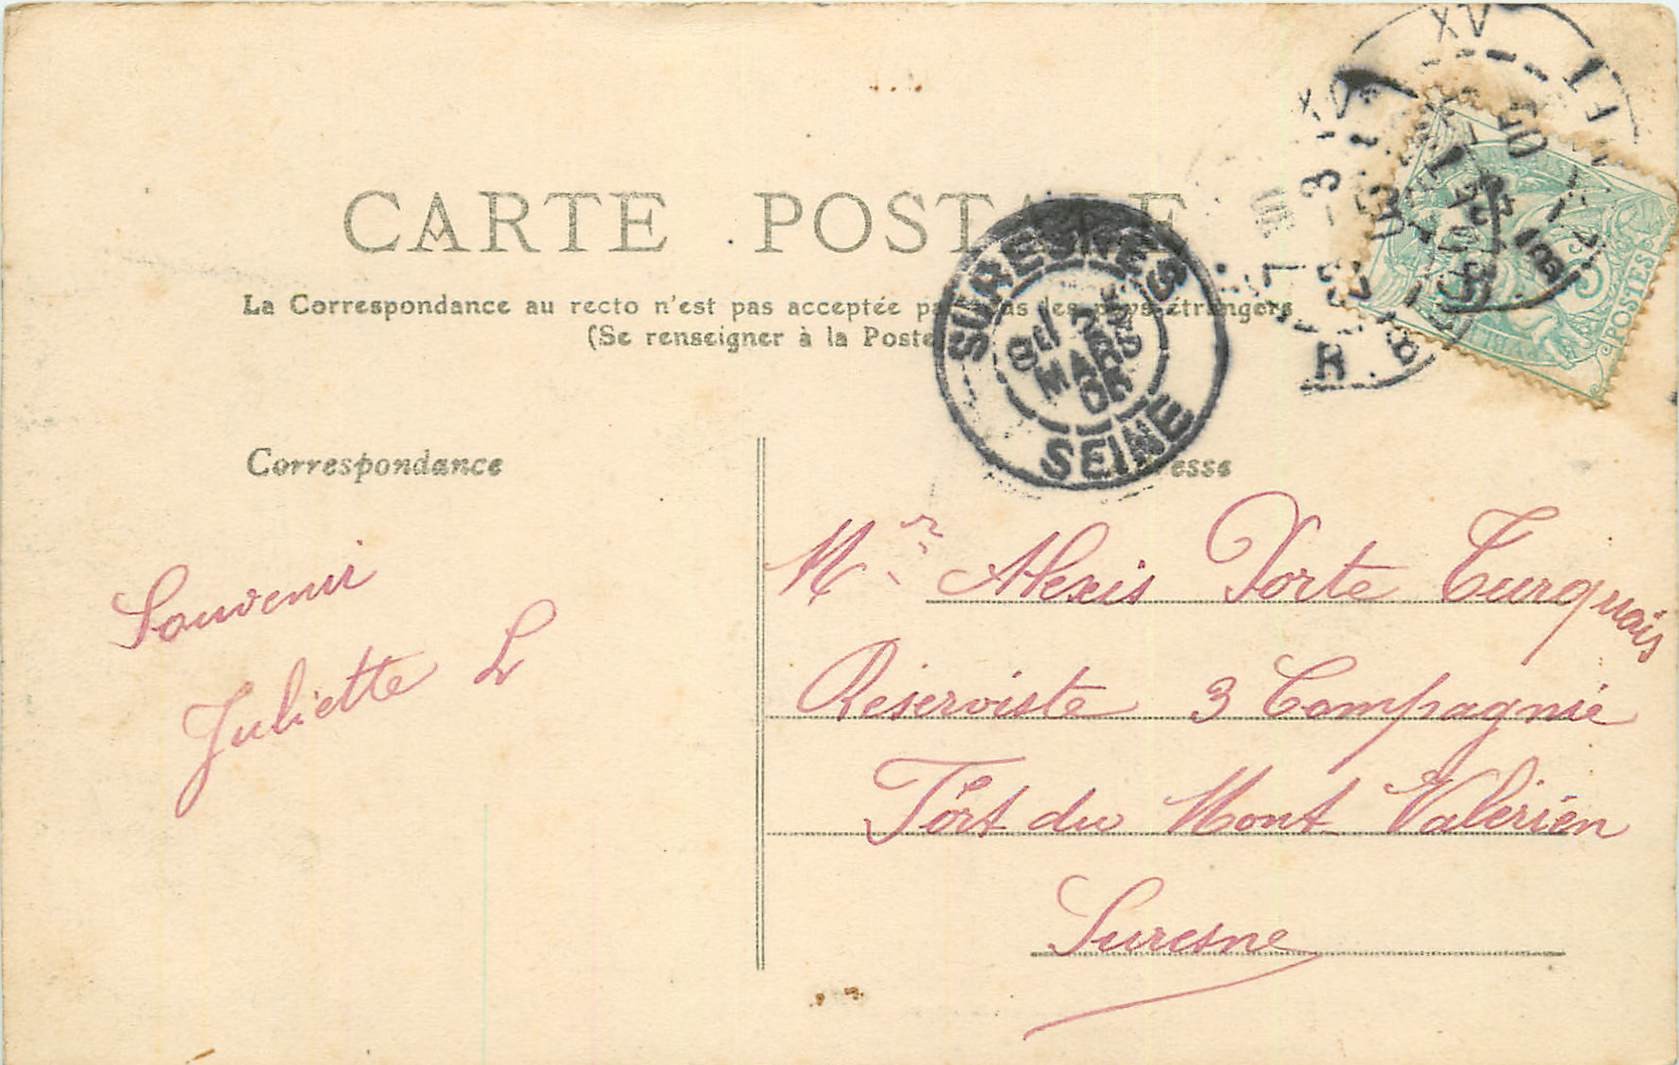 CARTE POSTALE
La Correspondance au recto n'est pas acceptée par tous les pays étrangers
(Se renseigner à la Poste
SURESNES
MARS
05
SEINE
POSTES
Correspondance
Souvenir
Juliette L
Mr Alexis Porte Turquais
Réserviste 3 Compagnie
Fort du Mont Valérien
Suresne